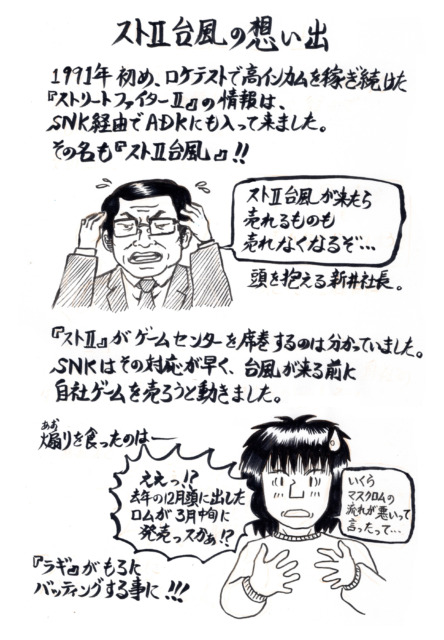 ストⅡ台風の想い出
1991年初め、ロケテストで高インカムを稼ぎ続けた
『ストリートファイターⅡ』の情報は、
SNK経由でADKにも入って来ました。
その名も『ストⅡ台風』!!
ストⅡ台風が来たら
売れるものも
売れなくなるぞ…
頭を抱える新井社長。
『ストⅡ』がゲームセンターを席巻するのは分かっていました。
SNKはその対応が早く、台風が来る前に
自社ゲームを売ろうと動きました。
あお
煽りを食ったのは―
ええっ!?
去年の12月頭に出した
ロムが3月中旬に
発売っスかぁ!?
いくら
マスクロムの
流れが悪いって
言ったって…
『ラギ』がもろに
バッティングする事に!!!